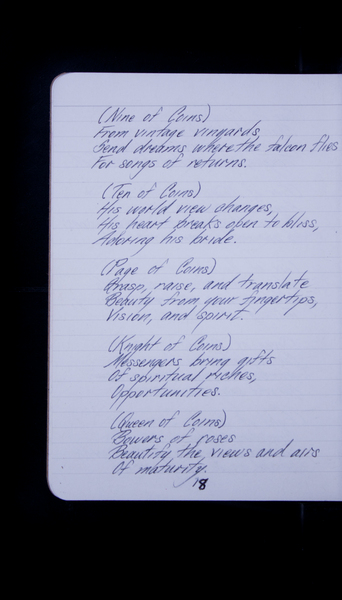 (Nine of Coins)
From vintage vingards,
Send dreams where the falcon flies
For songs of returns.
(Ten of Coins)
His world view changes,
His heart breaks open to bliss,
Adoring his bride.
(Page of Coins)
Grasp, raise, and translate
Beauty from your fingertips,
Vision, and spirit.
(Knight of Coins)
Messengers bring gifts
Of spiritual riches,
Opportunities.
(Queen of Coins)
Bowers of roses
Beautify the views and airs
Of maturity.
18